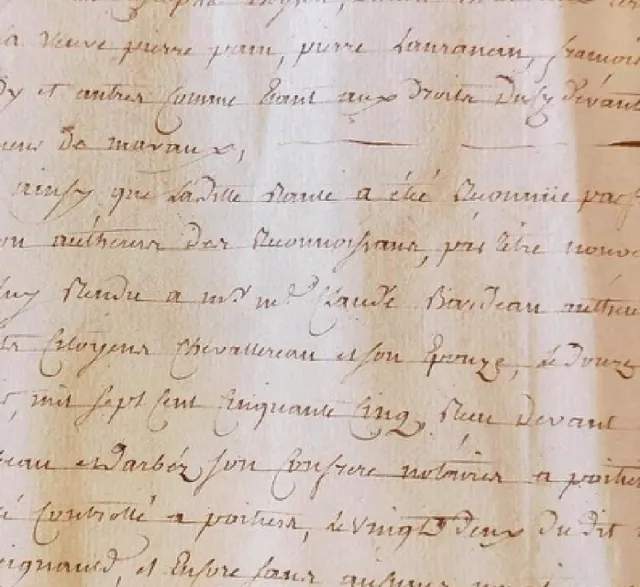 la veuve pierre pain, pierre Laurancin, françois
dy et autres Comme Etant aux droits dusy devant
de maraux,
ainsy que Laditte Rante a été Reconnüe par
autheurs des Reconnoissans, par titre nouvel
Rendu a mr. me. Claude Bardeau autheur
Citoyens Chevallereau et son Epouze, Le douze
mil sept Cent Cinquante Cinq, Reçu devant
et Darbéz son Confrere notaires a poitiers
Controllé a poitiers, Le vingt deux du dit
et Enfre sans aucunes